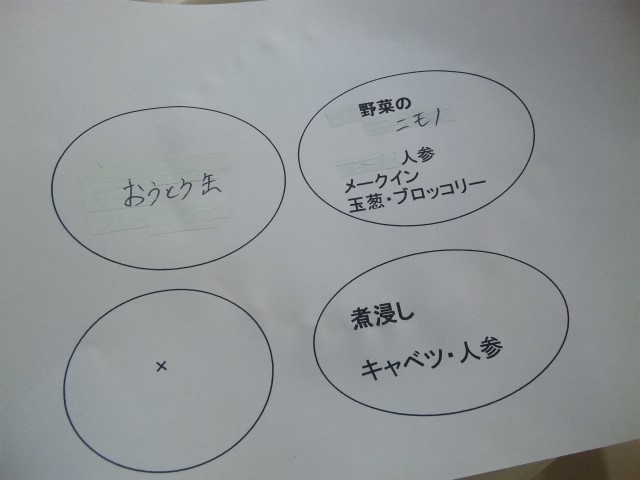 おうとう缶
野菜の
ニモノ
人参
メークイン
玉葱・ブロッコリー
×
煮浸し
キャベツ・人参